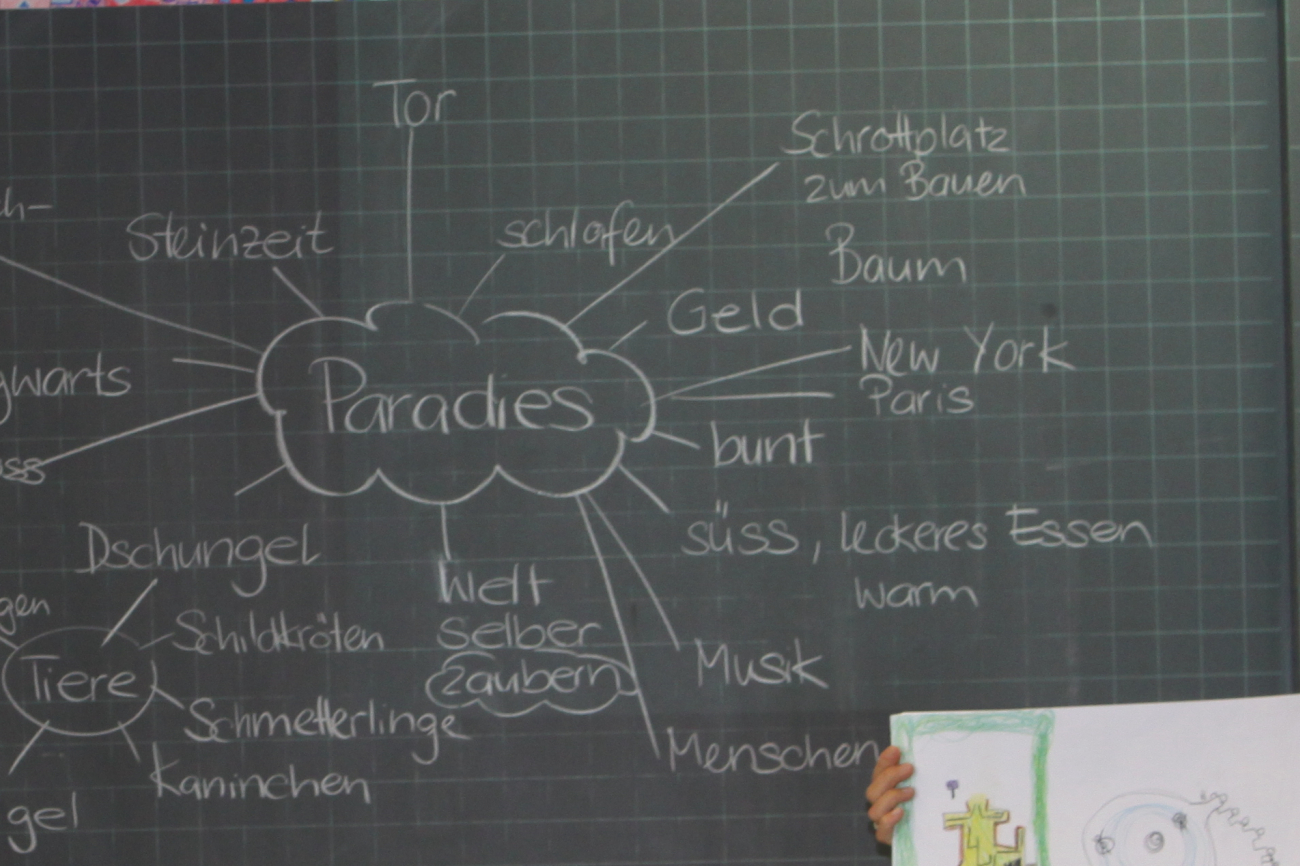 Tor
Schrottplatz
zum Bauen
ch-
Steinzeit
schlafen
Baum
Geld
New York
gwarts
Paradies
Paris
bunt
uss
süss, leckeres Essen
warm
Dschungel
Welt
selber
zaubern
gen
Schildkröten
Tiere
Musik
Schmetterlinge
Menschen
Kaninchen
gel